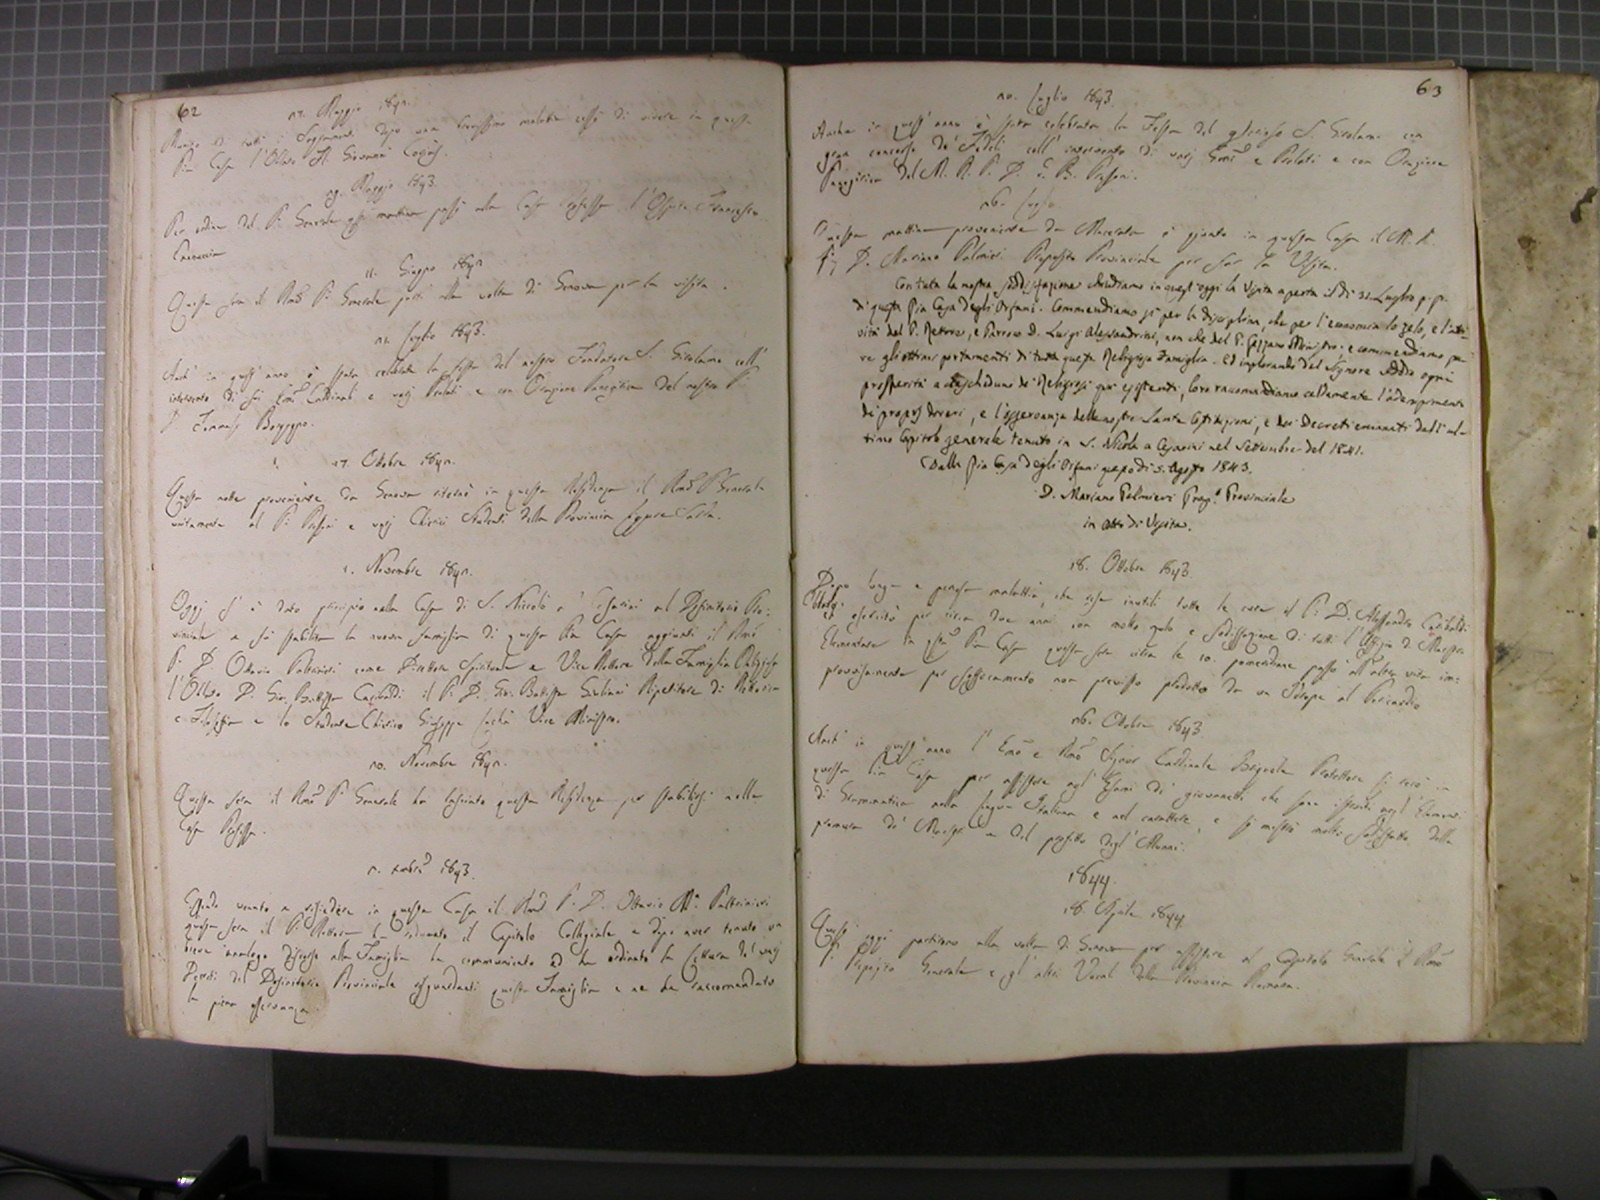 62
Maggio 1842.
Munito di tutti i Sagramenti dopo una brevissima malattia cessò di vivere in questa
Pia Casa l'Oblato Giovanni
29 Maggio 1843.
Per ordine del P. Generale questa mattina passò alla Casa Professa l'Ospite Francesco
11. Giugno 1842
Questa sera il Rmo P. Generale partì alla volta di Genova per la visita.
Luglio 1843.
Anche in quest'anno è stata celebrata la festa del nostro Fondatore S. Girolamo coll'
intervento di Emi Cardinali e varj Prelati e con Orazione Panegirica del nostro P.
D. Tommaso Borgogno.
27. Ottobre 1842.
Questa notte proveniente da Genova ritornò in questa Residenza il Rmo P. Generale
unitamente al P. e varj Chierici Studenti della Provincia Ligure Sarda.
1. Novembre 1842.
Oggi si è dato principio nella Casa di S. Niccolò a' Cesarini al Definitorio Pro-
vinciale e si stabilita la nuova famiglia di questa Pia Casa aggiunti il Rmo
P. D. Ottavio Paltrinieri come Direttore Spirituale e Vice Rettore della Famiglia Religiosa
l'Oblato D. Gio. Battista Garibaldi il P. D. Gio. Battista Giuliani Ripetitore di Rettorica
e Filosofia e lo Studente Chierico Giuseppe Vice Ministro.
20. Novembre 1842.
Questa sera il Rmo P. Generale ha lasciato questa Residenza per stabilirsi nella
Casa Professa.
1843.
Essendo venuto a risiedere in questa Casa il Rmo P. D. Ottavio Ma. Paltrinieri
questa sera il P. Rettore ha radunato il Capitolo Collegiale e dopo aver tenuto un
breve analogo discorso alla Famiglia ha comunicato ed ha ordinato la lettura dei varj
Decreti del Definitorio Provinciale risguardanti questa Famiglia e ne ha raccomandato
la piena osservanza.
63
20. Luglio 1843.
Anche in quest'anno è stata celebrata la Festa del glorioso S. Girolamo con
gran concorso de' Fedeli coll'intervento di varj Emi e Prelati e con Orazione
Panegirica del M. R. P. D. G. B.
26. Luglio
Questa mattina proveniente da Macerata è giunto in questa Casa il M. R.
P. D. Mariano Palmieri Preposito Provinciale per far la Visita.
Con tutta la nostra soddisfazione chiudiamo in quest'oggi la Visita aperta il dì 31. Luglio p. p.
di questa Pia Casa degli Orfani. Commendiamo sì per la disciplina, che per l'economia lo zelo, e l'atti-
vità del P. Rettore, e Parroco D. Luigi Alessandrini, non che del P. Gessaro Ministro: e commendiamo pu-
re gli ottimi portamenti di tutta questa Religiosa Famiglia. Ed implorando dal Signore Iddio ogni
prosperità a ciascheduno de' Religiosi qui esistenti, loro raccomandiamo caldamente l'adempimento
de' proprj doveri, e l'osservanza delle nostre Sante Costituzioni, e dei Decreti emanati dall'ul-
timo Capitolo generale tenuto in S. Nicola a Cesarini nel Settembre del 1841.
Dalla Pia Casa degli Orfani questo dì 5. Agosto 1843.
D. Mariano Palmieri Prep.o Provinciale
in atto di Visita.
18. Ottobre 1843.
Dopo lunga e penosa malattia, che rese inutili tutte le cure il P. D. Alessandro Garibaldi
che esercitò per circa due anni con molto zelo e sodisfazione di tutti l'Officio di Maestro
Elementare in questa Pia Casa questa sera circa le 10. pomeridiane passò all'altra vita im-
provvisamente per soffocamento non previsto prodotto da un Idrope al Pericardio
26. Ottobre 1843
Anche in quest'anno l'Emo e Rmo Signor Cardinale Brignole Protettore si recò in
questa Pia Casa per assistere agli Esami di giovanetti che sono istruiti negli Elementi
di Grammatica nella lingua Italiana e nel carattere, e si mostrò molto sodisfatto della
premura de' Maestri e del profitto degli Alunni.
1844.
18. Aprile 1844
Quest'oggi partirono alla volta di Genova per assistere al Capitolo Generale il Rmo
P. Preposito Generale e gli altri Vocali della Provincia Romana.